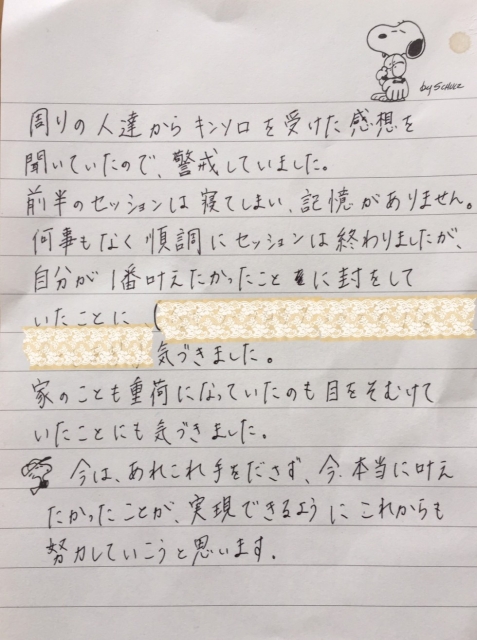 by SCHULZ
周りの人達からキンソロを受けた感想を
聞いていたので、警戒していました。
前半のセッションは寝てしまい、記憶がありません。
何事もなく順調にセッションは終わりましたが、
自分が1番叶えたかったことに封をして
いたことに
気づきました。
家のことも重荷になっていたのも目をそむけて
いたことにも気づきました。
今は、あれこれ手をださず、今、本当に叶え
たかったことが、実現できるようにこれからも
努力していこうと思います。